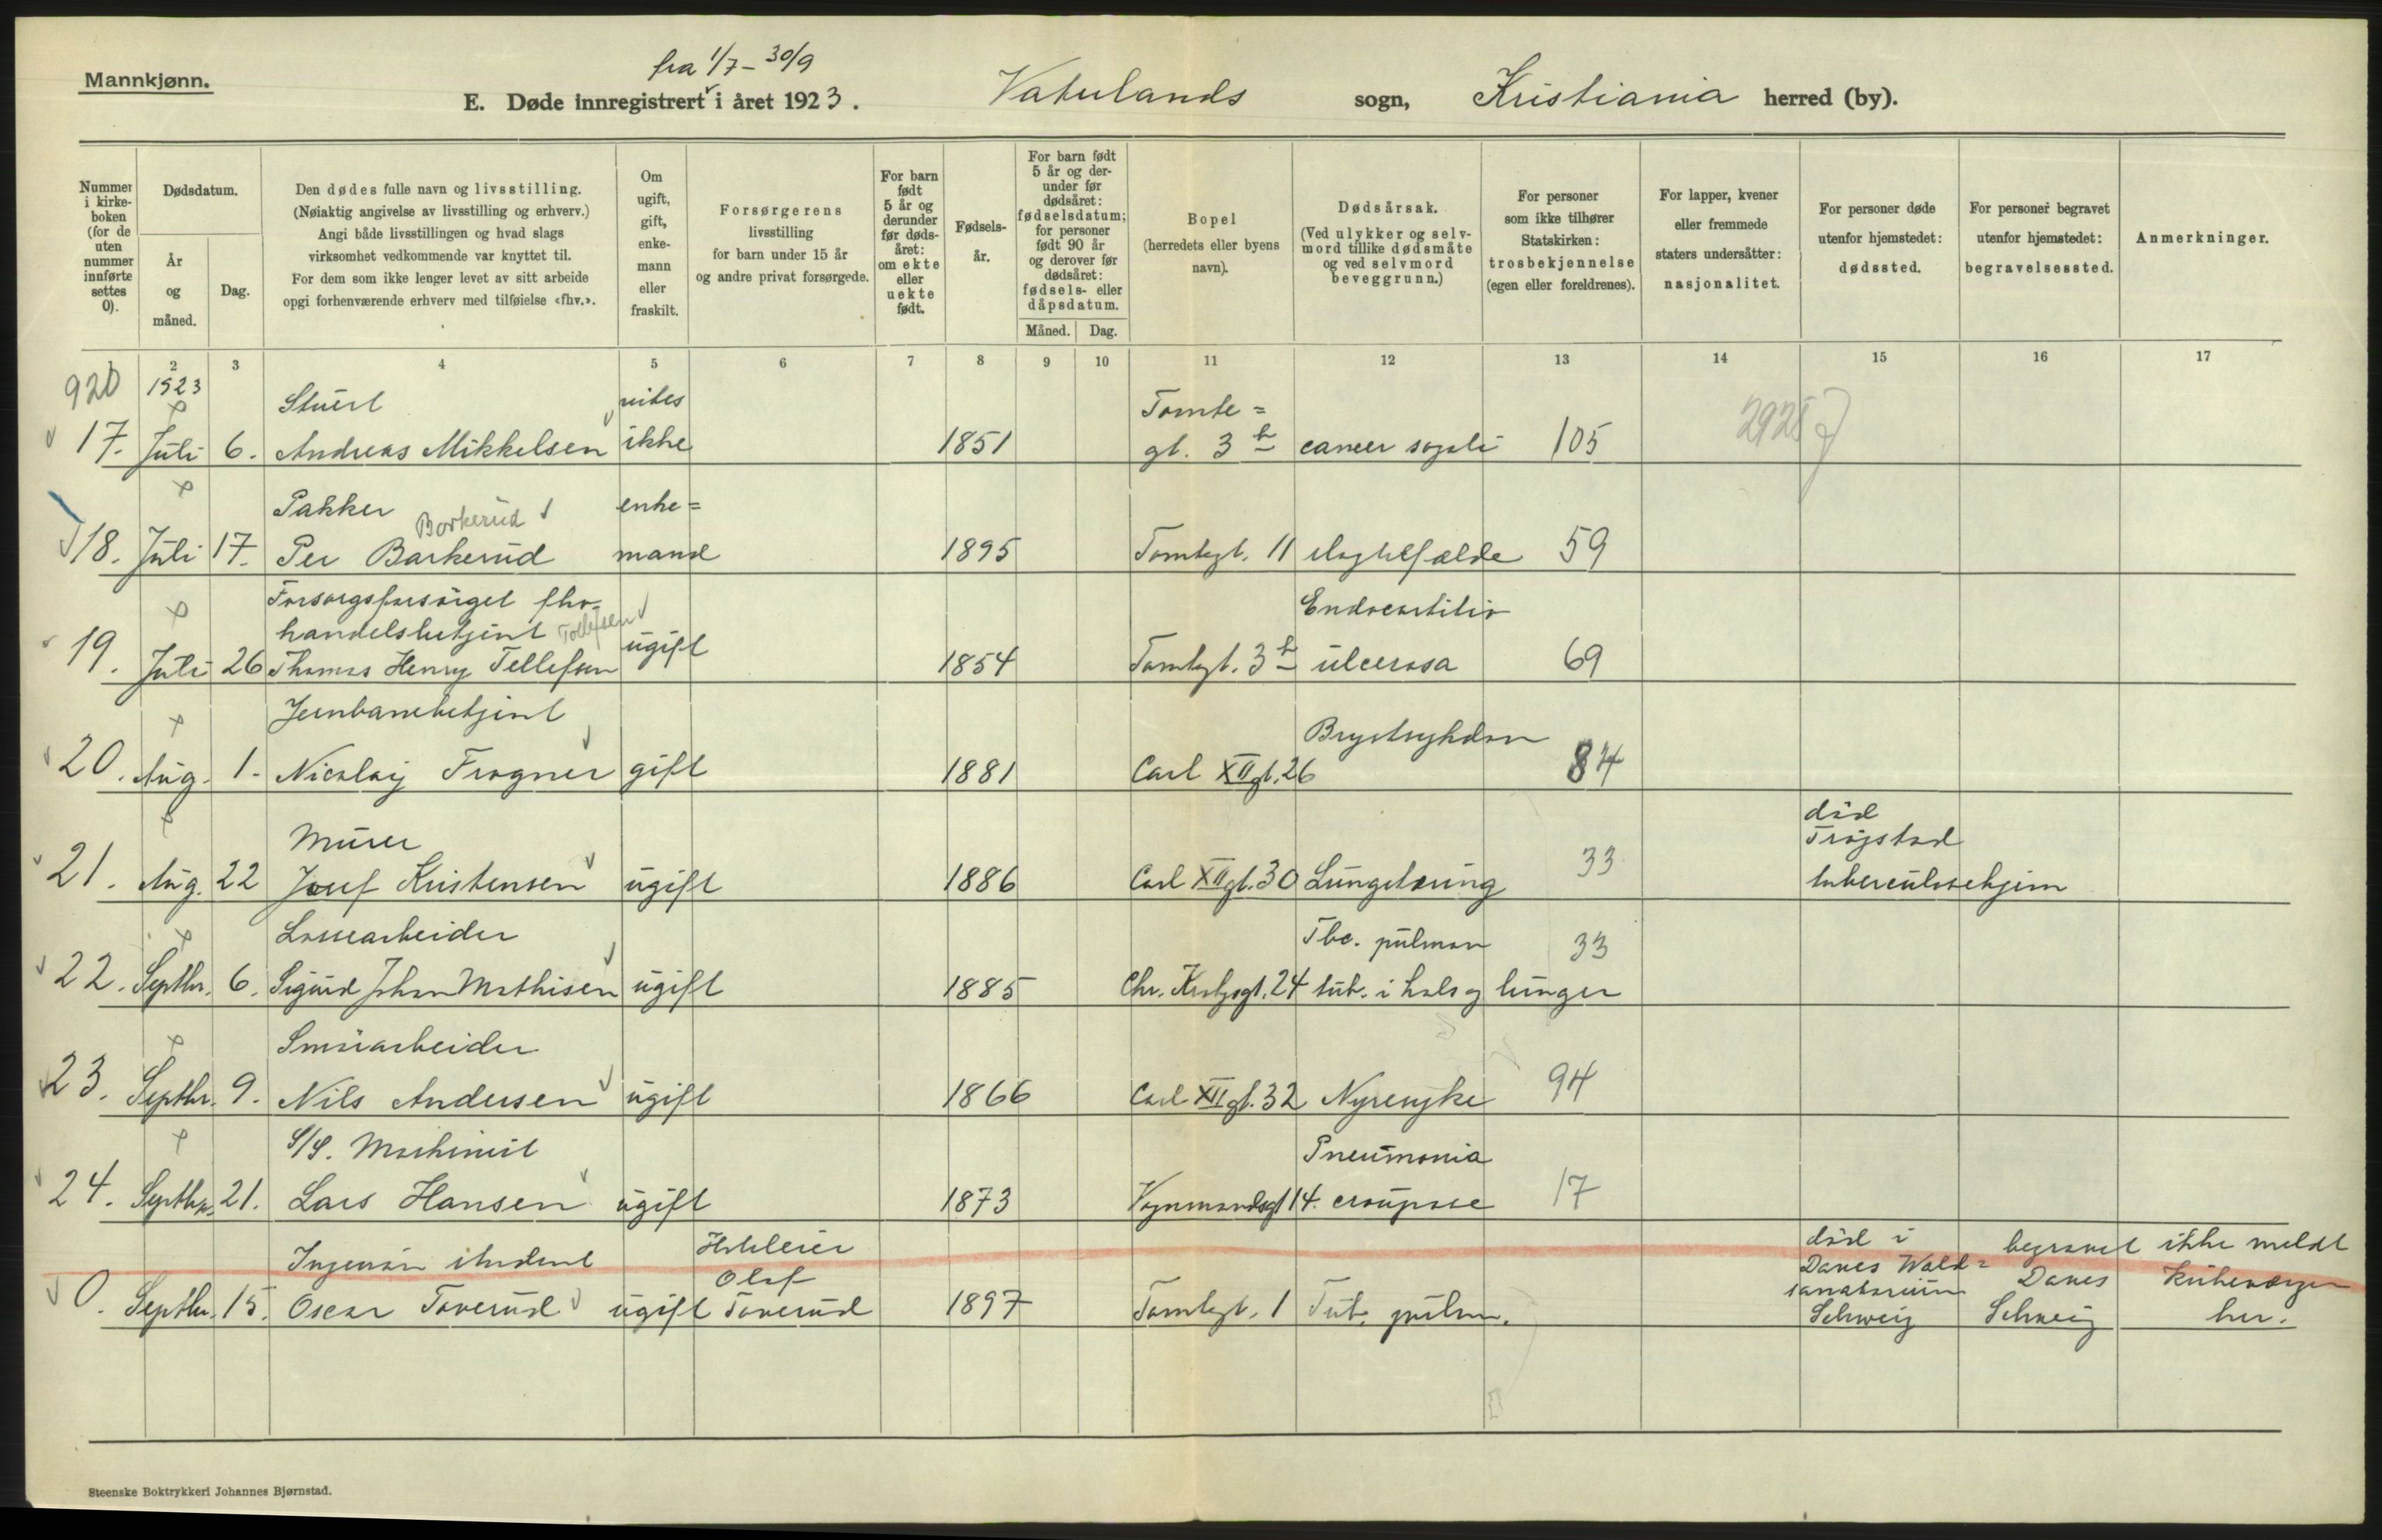 Mannkjønn.
fra 1/7 - 30/9
E. Døde innregistrert i året 1923. Vaterlands sogn, Kristiania herred (by).
Nummer i kirke-boken (for de uten nummer innførte settes 0).
Dødsdatum.
År og måned.
Dag.
Den dødes fulle navn og livsstilling.
(Nøiaktig angivelse av livsstilling og erhverv.)
Angi både livsstillingen og hvad slags
virksomhet vedkommende var knyttet til.
For dem som ikke lenger levet av sitt arbeide
opgi forhenværende erhverv med tilføielse «fhv.».
Om ugift, gift, enke-mann eller fraskilt.
Forsørgerens
livsstilling
for barn under 15 år
og andre privat forsørgede.
For barn født 5 år og derunder før døds-året: om ekte eller uekte født.
Fødsels-år.
For barn født 5 år og der-under før dødsåret: fødselsdatum; for personer født 90 år og derover før dødsåret: fødsels- eller dåpsdatum.
Måned. Dag.
Bopel
(herredets eller byens
navn).
Dødsårsak.
(Ved ulykker og selv-
mord tillike dødsmåte
og ved selvmord
beveggrunn.)
For personer
som ikke tilhører
Statskirken:
trosbekjennelse
(egen eller foreldrenes).
For lapper, kvener
eller fremmede
staters undersåtter:
nasjonalitet.
For personer døde
utenfor hjemstedet:
dødssted.
For personer begravet
utenfor hjemstedet:
begravelsessted.
Anmerkninger.
2 3 4 5 6 7 8 9 10 11 12 13 14 15 16 17
920 1923
Stuert vites Tomte=
17. Juli 6. Andreas Mikkelsen ikke 1851 gt. 3 b 105
Pakker Borkerud enke=
18. Juli 17. Per Barkerud mand 1895 Tomtegt. 11 59
Forsorgsforsørget fhv.
handelsbetjent Tollefsen Endocartitis
19. Juli 26 Thomas Henry Tellefsen ugift 1854 Tomtegt. 3 b ulcerosa 69
Jernbanebetjent Brystsykdom
20. Aug. 1. Nicolay Frogner gift 1881 Carl XII gt. 26 84
Murer død Trøgstad
21. Aug. 22 Josef Kristensen ugift 1886 Carl XII gt. 30 Lungetæring 33 tuberculosehjem
Lossearbeider Tbc. pulmon 33
22. Septbr. 6. Sigurd Johan Mathisen ugift 1885 Chr. Krohgsgt. 24 tub. i hals og lunger
Smørarbeider
23. Septbr. 9. Nils Andersen ugift 1866 Carl XII gt. 32 Nyresyke 94
S/S. Maskinist Pneumonia
24. Septbr. 21. Lars Hansen ugift 1873 Vognmandsgt 14. croupose 17
Ingeniør student Hotteleier død i begravet ikke meldt
Olaf Daves Wald= Daves kirkeverger
sanatorium
0. Septbr. 15. Oscar Toverud ugift Toverud 1897 Tomtegt. 1 Tub. pulm. Schweiz Schweiz her.
Steenske Boktrykkeri Johannes Bjørnstad.